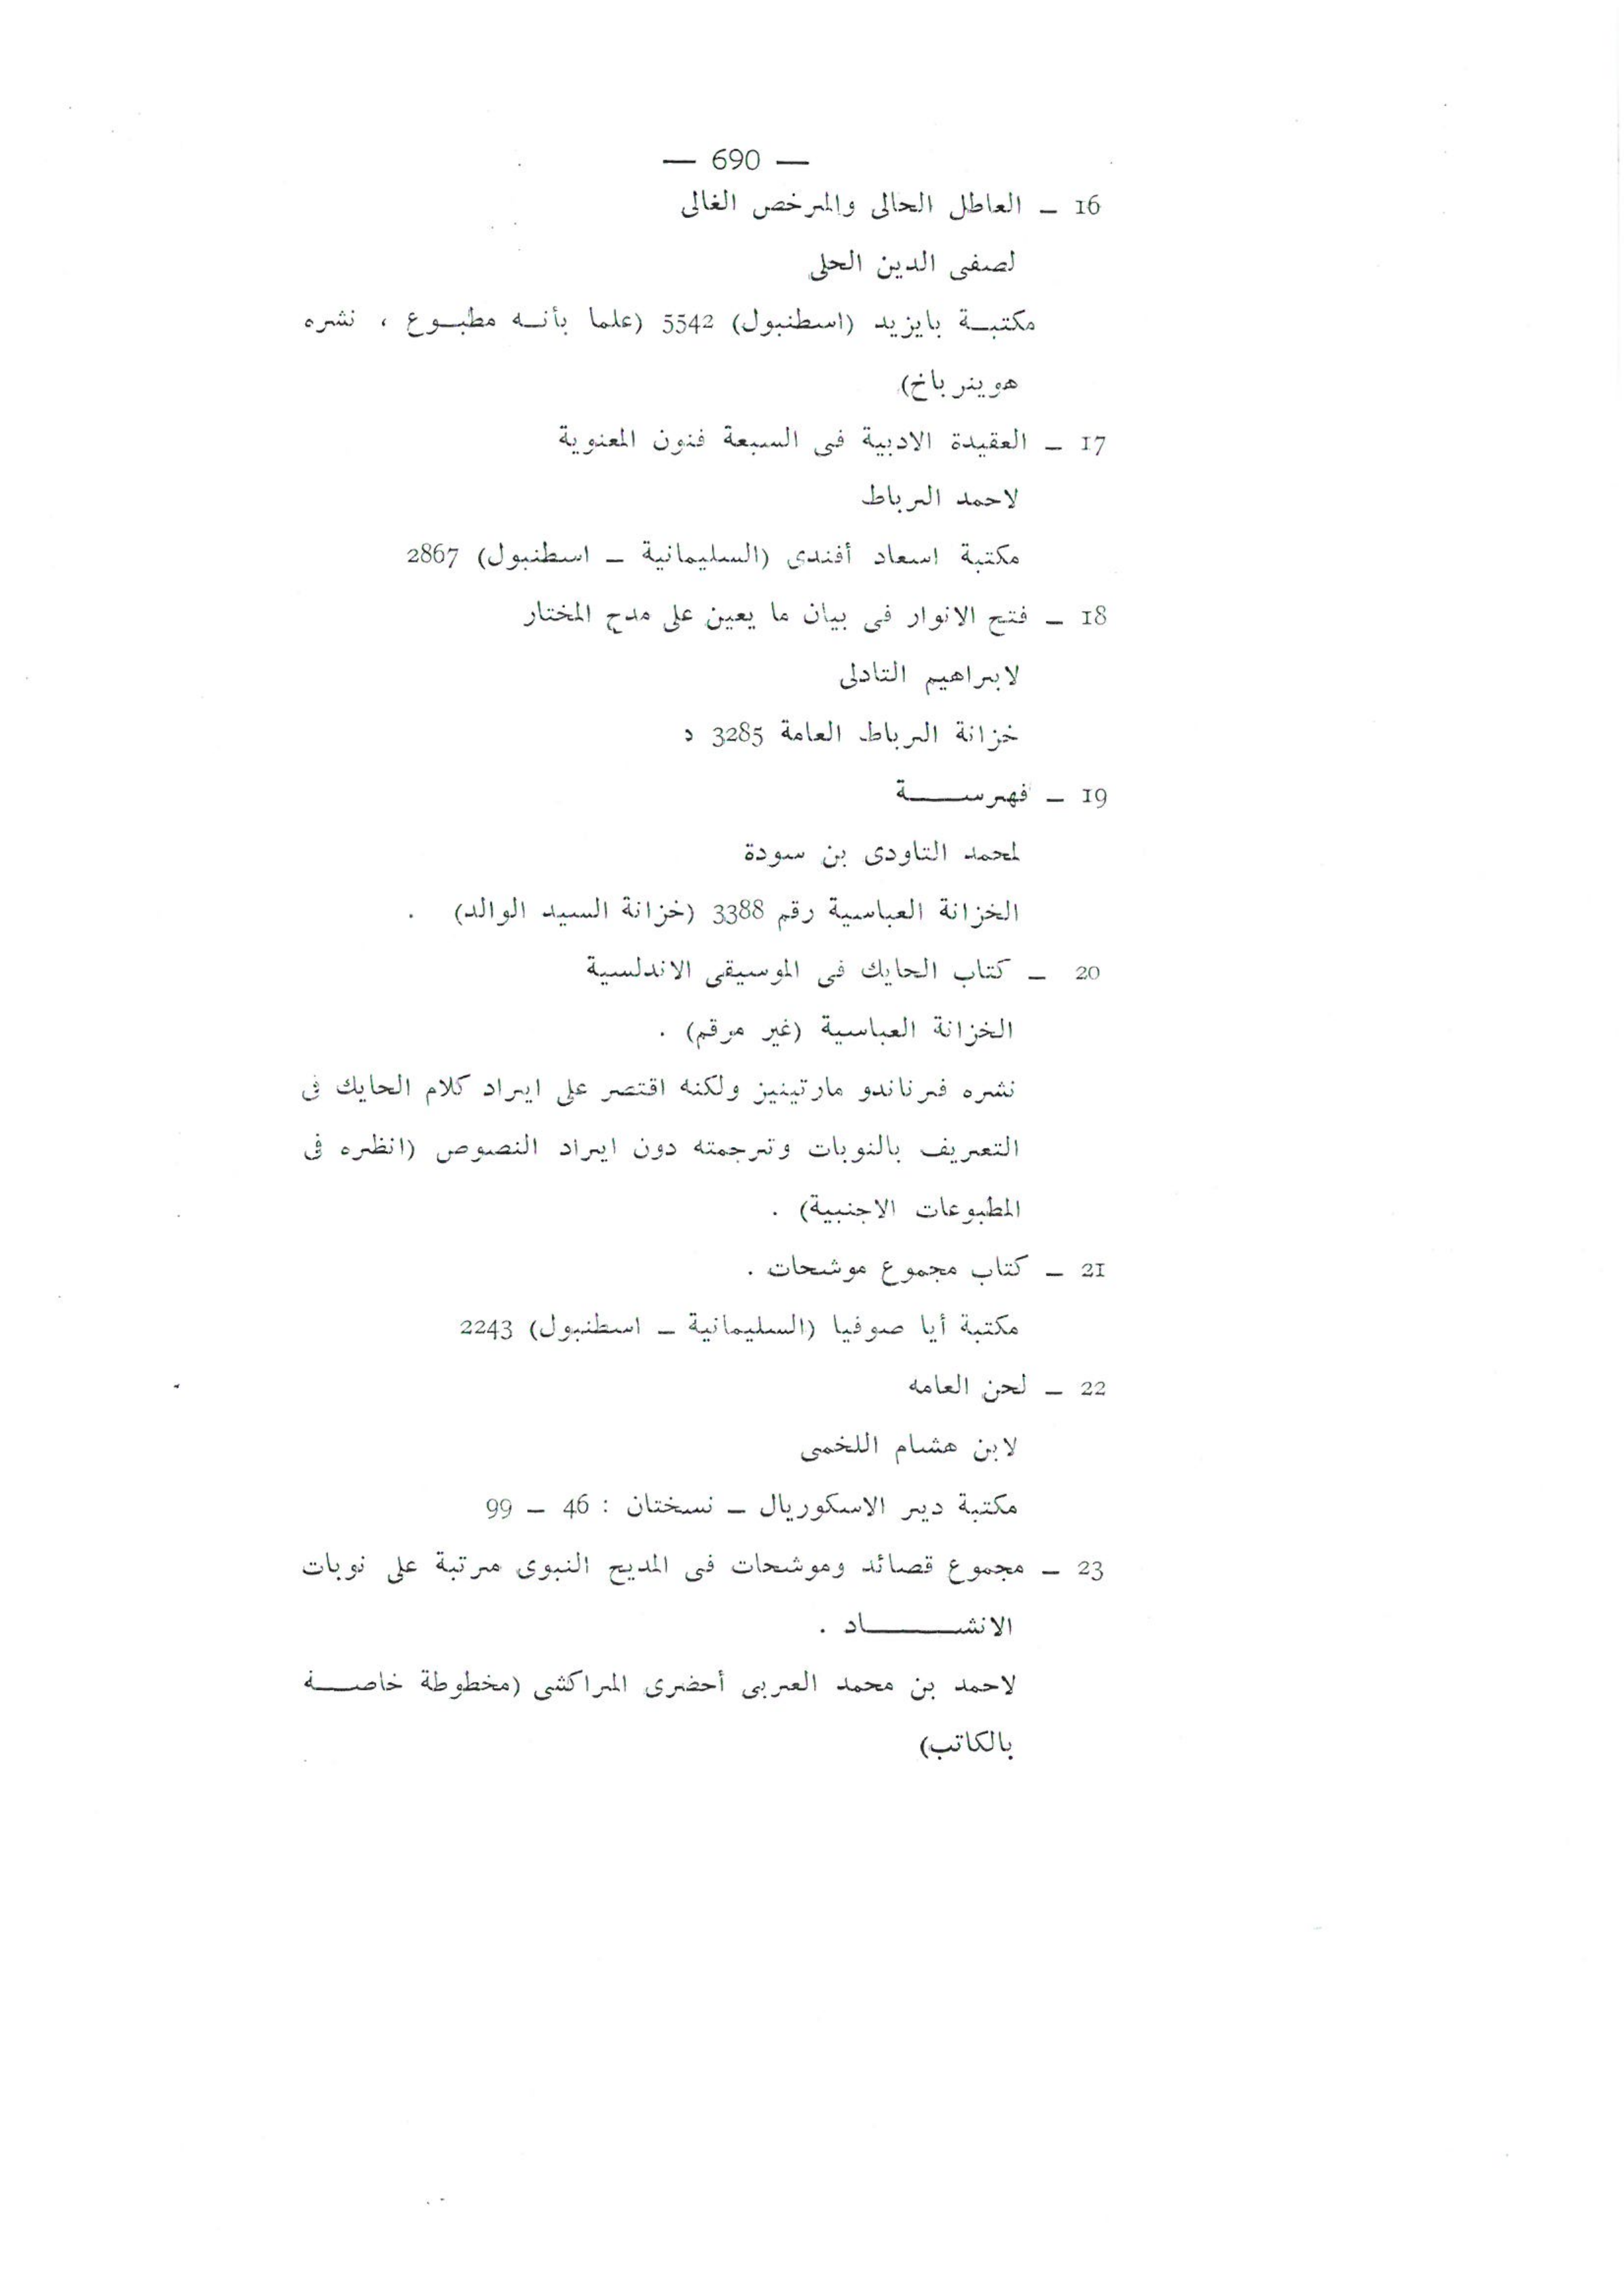 — 690 —
16 – العاطل الحالى والمرخص الغالى
لصفى الدين الحلى
مكتبــة بايزيد (اسطنبول) 5542 (علما بأنــه مطبــوع ، نشره
هوينرباخ)
17 – العقيدة الادبية فى السبعة فنون المعنوية
لاحمد الرباط
مكتبة اسعاد أفندى (السليمانية – اسطنبول) 2867
18 – فتح الانوار فى بيان ما يعين على مدح المختار
لابراهيم التادلى
خزانة الرباط العامة 3285 د
19 – فهرســــة
لمحمد التاودى بن سودة
الخزانة العباسية رقم 3388 (خزانة السيد الوالد) .
20 – كتاب الحايك فى الموسيقى الاندلسية
الخزانة العباسية (غير مرقم) .
نشره فرناندو مارتينيز ولكنه اقتصر على ايراد كلام الحايك فى
التعريف بالنوبات وترجمته دون ايراد النصوص (انظره فى
المطبوعات الاجنبية) .
21 – كتاب مجموع موشحات .
مكتبة أيا صوفيا (السليمانية – اسطنبول) 2243
22 – لحن العامه
لابن هشام اللخمى
مكتبة دير الاسكوريال – نسختان : 46 – 99
23 – مجموع قصائد وموشحات فى المديح النبوى مرتبة على نوبات
الانشــــــاد .
لاحمد بن محمد العربى أحضرى المراكشى (مخطوطة خاصــة
بالكاتب)